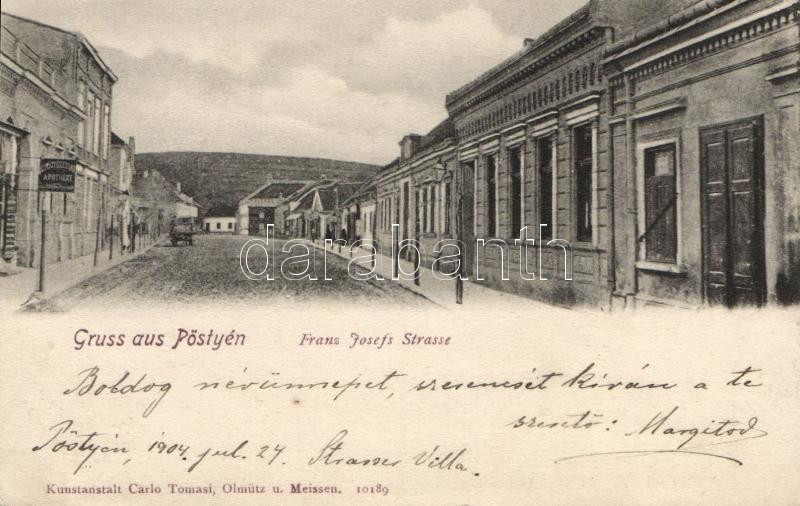 APOTHEKE
darabanth
Gruss aus Pöstyén
Franz Josefs Strasse
Boldog névünnepet, szerencsét kiván a te
szerető: Margitod
Pöstyén, 1904 jul. 24. Strasser Villa.
Kunstanstalt Carlo Tomasi, Olmütz u. Meissen. 10189